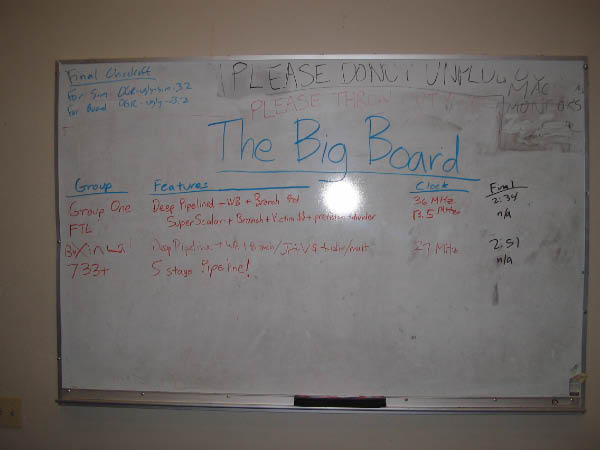 Final Checkoff
For Sim DGR-ugly-sim-3.2
For Board DGR-ugly-3.2
PLEASE DON'T UNPLUG
MAC
MONITORS
PLEASE THROW
The Big Board
Group Features Clock Final
Group One Deep Pipelined + WB + Branch Pred 36 MHz 2:34
FTL SuperScalar + Branch + Victim + 13.5 MHz n/a
Deep Pipeline + WB + Branch 27 MHz 2:51
733+ 5 stage Pipeline! n/a